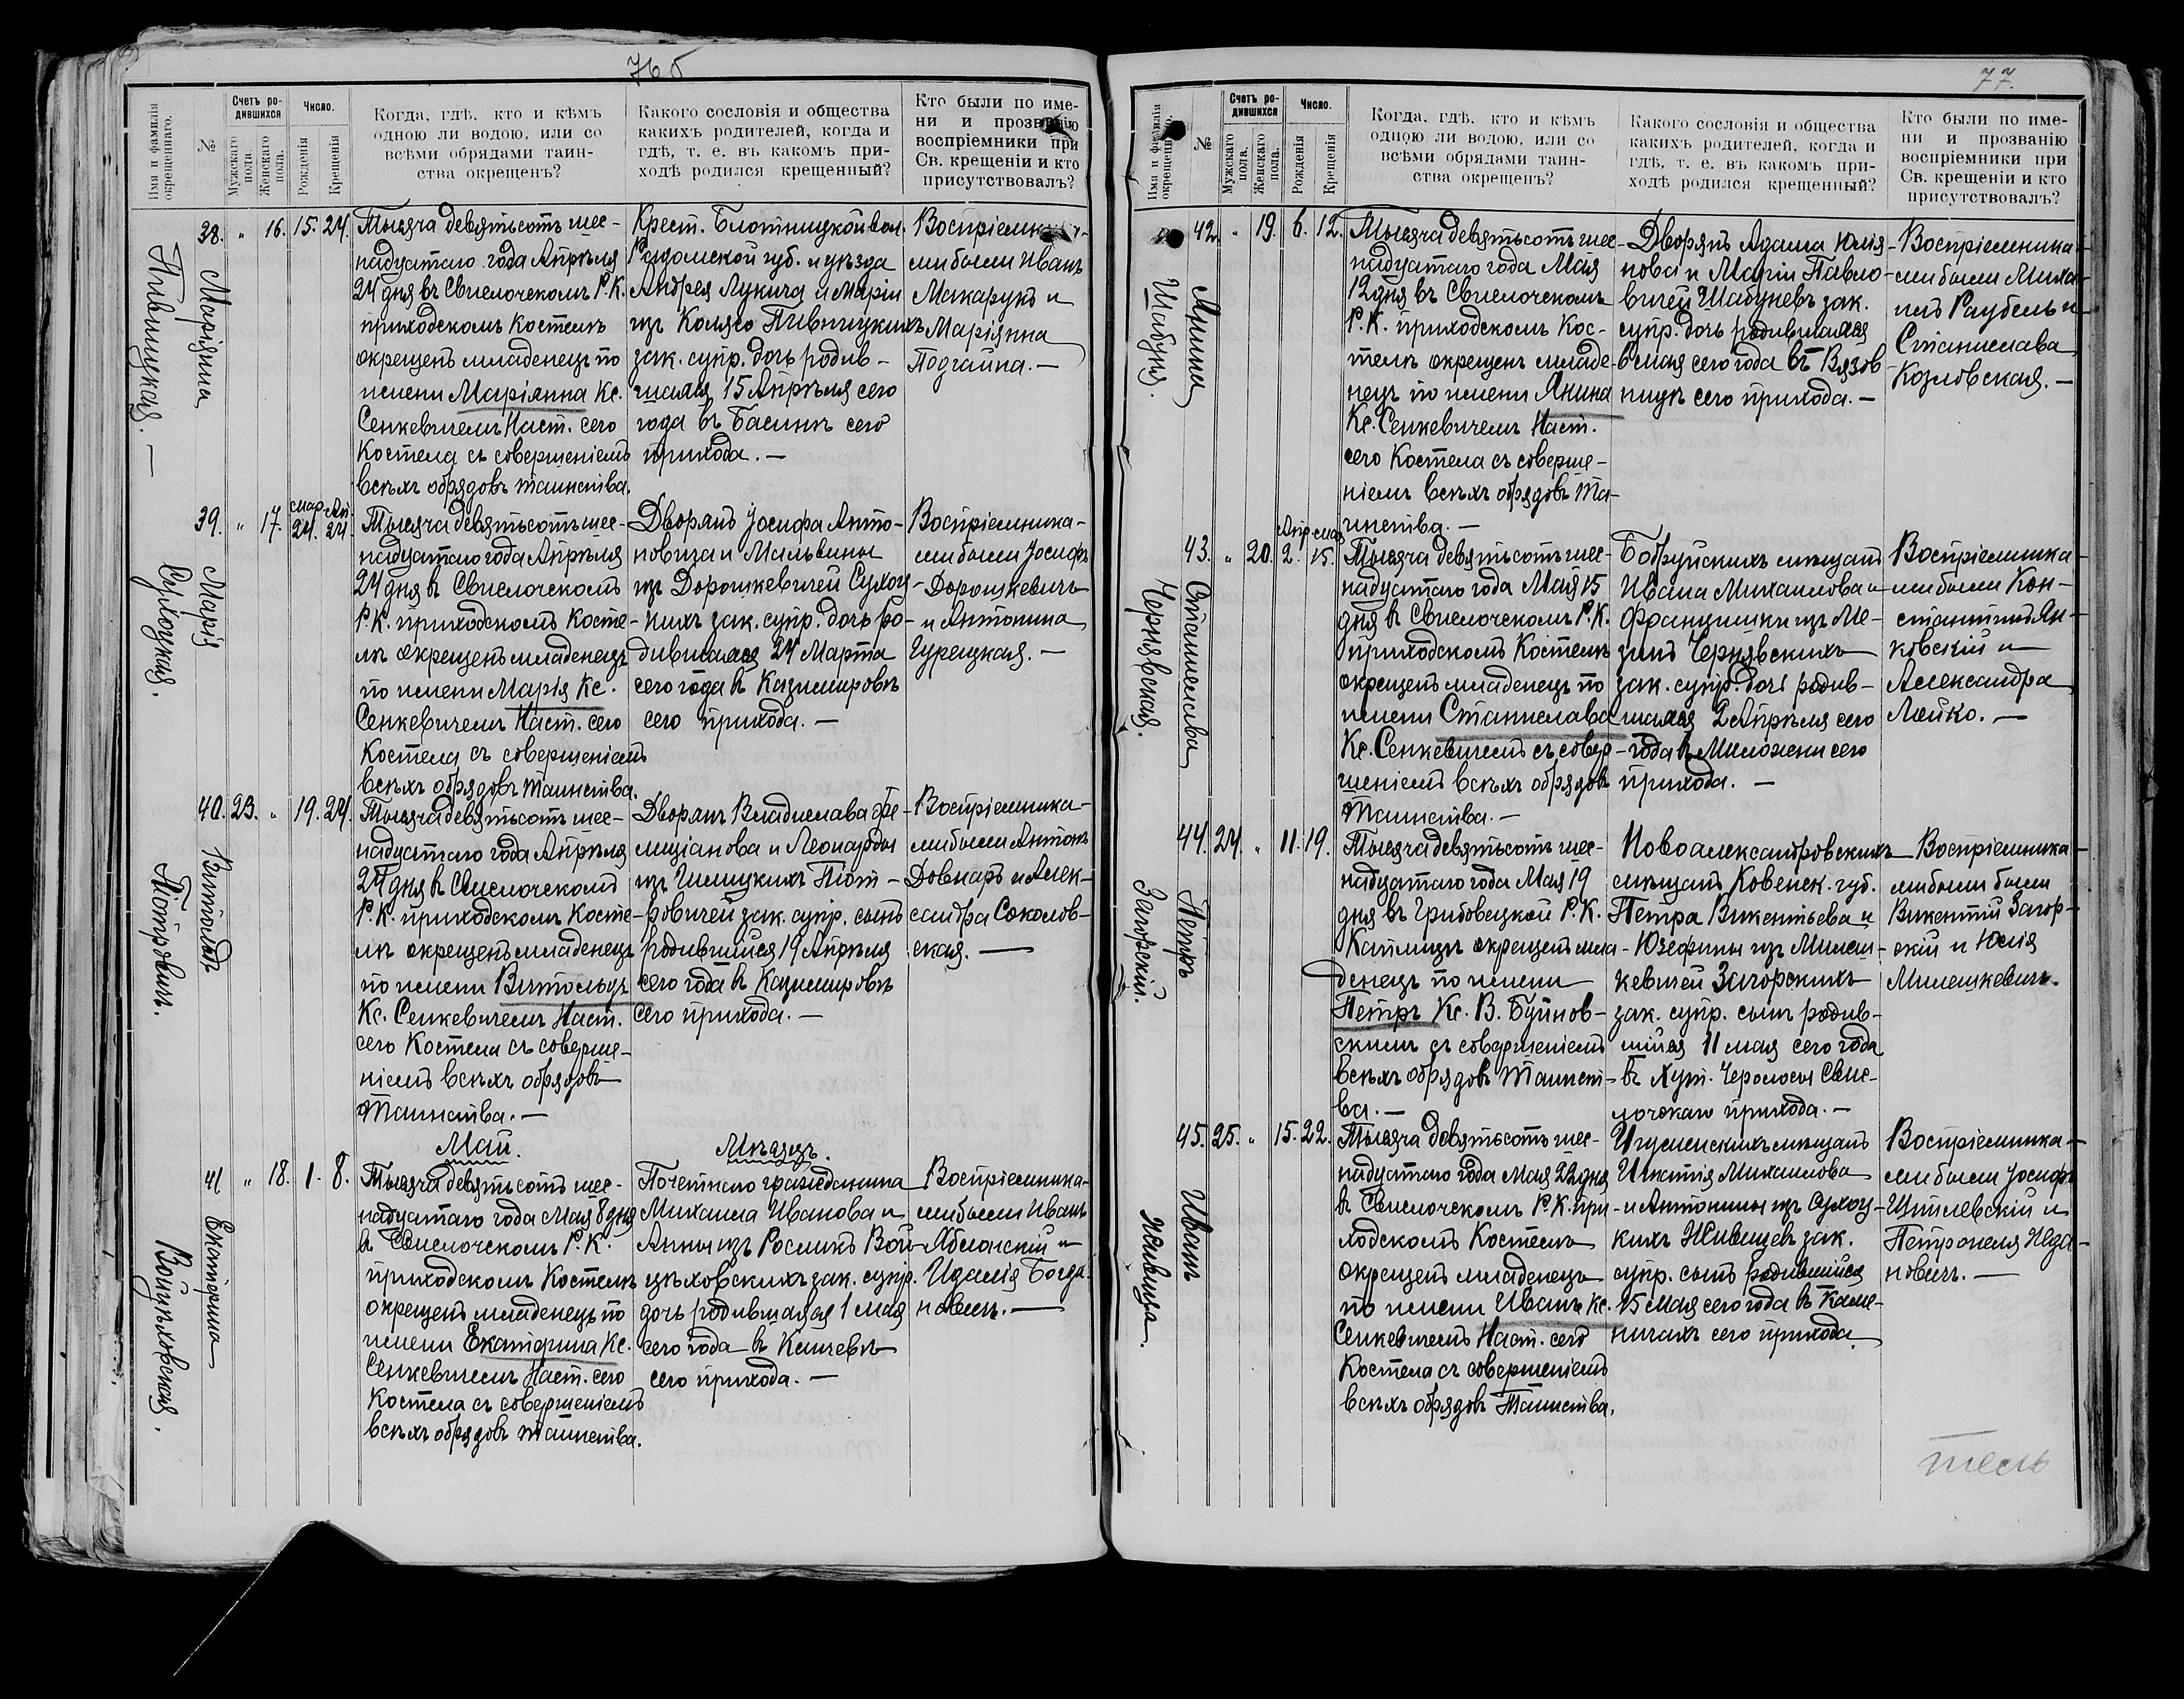 76 б
Имя и фамилія окрещеннаго.
№
Счетъ ро-
дившихся
Мужскаго пола.
Женскаго пола.
Число.
Рожденія
Крещенія
Когда, гдѣ, кто и кѣмъ
одною ли водою, или со
всѣми обрядами таин-
ства окрещенъ?
Какого сословія и общества
какихъ родителей, когда и
гдѣ, т. е. въ какомъ при-
ходѣ родился крещенный?
Кто были по име-
ни и прозванію
воспріемники при
Св. крещеніи и кто
присутствовалъ?
Маріянна
Пивницкая. —
38. " 16. 15. 24.
Тысяча девятьсотъ шес-
надцатаго года Апрѣля
24 дня въ Свислочскомъ Р. К.
приходскомъ Костелѣ
окрещенъ младенецъ по
имени Маріянна Кс.
Сенкевичемъ Наст. сего
Костела съ совершеніемъ
всѣхъ обрядовъ таинства.
Крест. Блотницкой вол.
Радомской губ. и уѣзда
Андрея Лукича и Маріи
изъ Колясо Пивницкихъ
зак. супр. дочь родив-
шаяся 15 Апрѣля сего
года въ Басинѣ сего
прихода. —
Воспріемника-
ми были Иванъ
Макарукъ и
Маріянна
Подгайна. —
Марія
Сулоцкая.
39. " 17. мар. 24. Ап. 24.
Тысяча девятьсотъ шес-
надцатаго года Апрѣля
24 дня въ Свислочскомъ
Р. К. приходскомъ Косте-
лѣ окрещенъ младенецъ
по имени Марія Кс.
Сенкевичемъ Наст. сего
Костела съ совершеніемъ
всѣхъ обрядовъ таинства.
Дворянъ Іосифа Анто-
новича и Мальвины
изъ Дорошкевичей Сухоц-
кихъ зак. супр. дочь ро-
дившаяся 24 Марта
сего года въ Казимировѣ
сего прихода. —
Воспріемника-
ми были Іосифъ
Дорошкевичъ
и Антонина
Гурецкая. —
Витольдъ
Піотровичъ.
40. 23. " 19. 24.
Тысяча девятьсотъ шес-
надцатаго года Апрѣля
24 дня въ Свислочскомъ
Р. К. приходскомъ Косте-
лѣ окрещенъ младенецъ
по имени Витольдъ
Кс. Сенкевичемъ Наст.
сего Костела съ соверше-
ніемъ всѣхъ обрядовъ
Таинства. —
Дворянъ Владислава Фе-
лиціанова и Леонарды
изъ Гилицкихъ Піот-
ровичей зак. супр. сынъ
родившійся 19 Апрѣля
сего года въ Казимировѣ
сего прихода. —
Воспріемника-
ми были Антонъ
Довнаръ и Алек-
сандра Соколов-
ская. —
Май. Мѣсяцъ.
Екатерина
Войцѣховская.
41 " 18. 1. 8.
Тысяча девятьсотъ шес-
надцатаго года Мая 8 дня
въ Свислочскомъ Р. К.
приходскомъ Костелѣ
окрещенъ младенецъ по
имени Екатерина Кс.
Сенкевичемъ Наст. сего
Костела съ совершеніемъ
всѣхъ обрядовъ таинства.
Почетнаго гражданина
Михаила Иванова и
Анны изъ Росликъ Вой-
цѣховскихъ зак. супр.
дочь родившаяся 1 мая
сего года въ Кличевѣ
сего прихода. —
Воспріемника-
ми были Иванъ
Яблонскій и
Идалія Богда-
новичъ. —
77.
Имя и фамилія окрещеннаго.
№
Счетъ ро-
дившихся
Мужскаго пола.
Женскаго пола.
Число.
Рожденія
Крещенія
Когда, гдѣ, кто и кѣмъ
одною ли водою, или со
всѣми обрядами таин-
ства окрещенъ?
Какого сословія и общества
какихъ родителей, когда и
гдѣ, т. е. въ какомъ при-
ходѣ родился крещенный?
Кто были по име-
ни и прозванію
воспріемники при
Св. крещеніи и кто
присутствовалъ?
Янина
Шабуня.
42. " 19. 6. 12.
Тысяча девятьсотъ шес-
надцатаго года Мая
12 дня въ Свислочскомъ
Р. К. приходскомъ Кос-
телѣ окрещенъ младе-
нецъ по имени Янина
Кс. Сенкевичемъ Наст.
сего Костела съ соверше-
ніемъ всѣхъ обрядовъ Та-
инства. —
Дворянъ Адама Юлія-
нова и Маріи Павло-
вичей Шабуневъ зак.
супр. дочь родившаяся
6 мая сего года въ Вязов-
ницѣ сего прихода. —
Воспріемника-
ми были Миха-
илъ Раубель и
Станислава
Козловская. —
Станислава
Чернявская.
43. " 20. Апр. 2. мая 15.
Тысяча девятьсотъ шес-
надцатаго года Мая 15
дня въ Свислочскомъ Р. К.
приходскомъ Костелѣ
окрещенъ младенецъ по
имени Станислава
Кс. Сенкевичемъ съ совер-
шеніемъ всѣхъ обрядовъ
Таинства. —
Бобруйскихъ мѣщанъ
Ивана Михаилова и
Францишки изъ Ме-
зинъ Чернявскихъ
зак. супр. дочь родив-
шаяся 2 Апрѣля сего
года въ Миложени сего
прихода. —
Воспріемника-
ми были Кон-
стантинъ Ян-
ковскій и
Александра
Лейко. —
Петръ
Загорскій.
44. 24. " 11. 19.
Тысяча девятьсотъ шес-
надцатаго года Мая 19
дня въ Грибовецкой Р. К.
Каплицѣ окрещенъ мла-
денецъ по имени
Петръ Кс. В. Буйнов-
скимъ съ совершеніемъ
всѣхъ обрядовъ Таинст-
ва. —
Новоалександровскихъ
мѣщанъ Ковенск. губ.
Петра Викентьева и
Юзефины изъ Милеш-
кевичей Загорскихъ
зак. супр. сынъ родив-
шійся 11 мая сего года
въ Хут. Черолосы Свис-
лочскаго прихода. —
Воспріемника-
ми были были
Викентій Загор-
скій и Юлія
Милешкевичъ.
Иванъ
Живица.
45. 25. " 15. 22.
Тысяча девятьсотъ шес-
надцатаго года Мая 22 дня
въ Свислочскомъ Р. К. при-
ходскомъ Костелѣ
окрещенъ младенецъ
по имени Иванъ Кс.
Сенкевичемъ Наст. сего
Костела съ совершеніемъ
всѣхъ обрядовъ Таинства.
Игуменскихъ мѣщанъ
Игнатія Михаилова
и Антонины изъ Сухоц-
кихъ Живицевъ зак.
супр. сынъ родившійся
15 Мая сего года въ Каме-
ничахъ сего прихода.
Воспріемника-
ми были Іосифъ
Щигилевскій и
Петронеля Жда-
новичъ. —